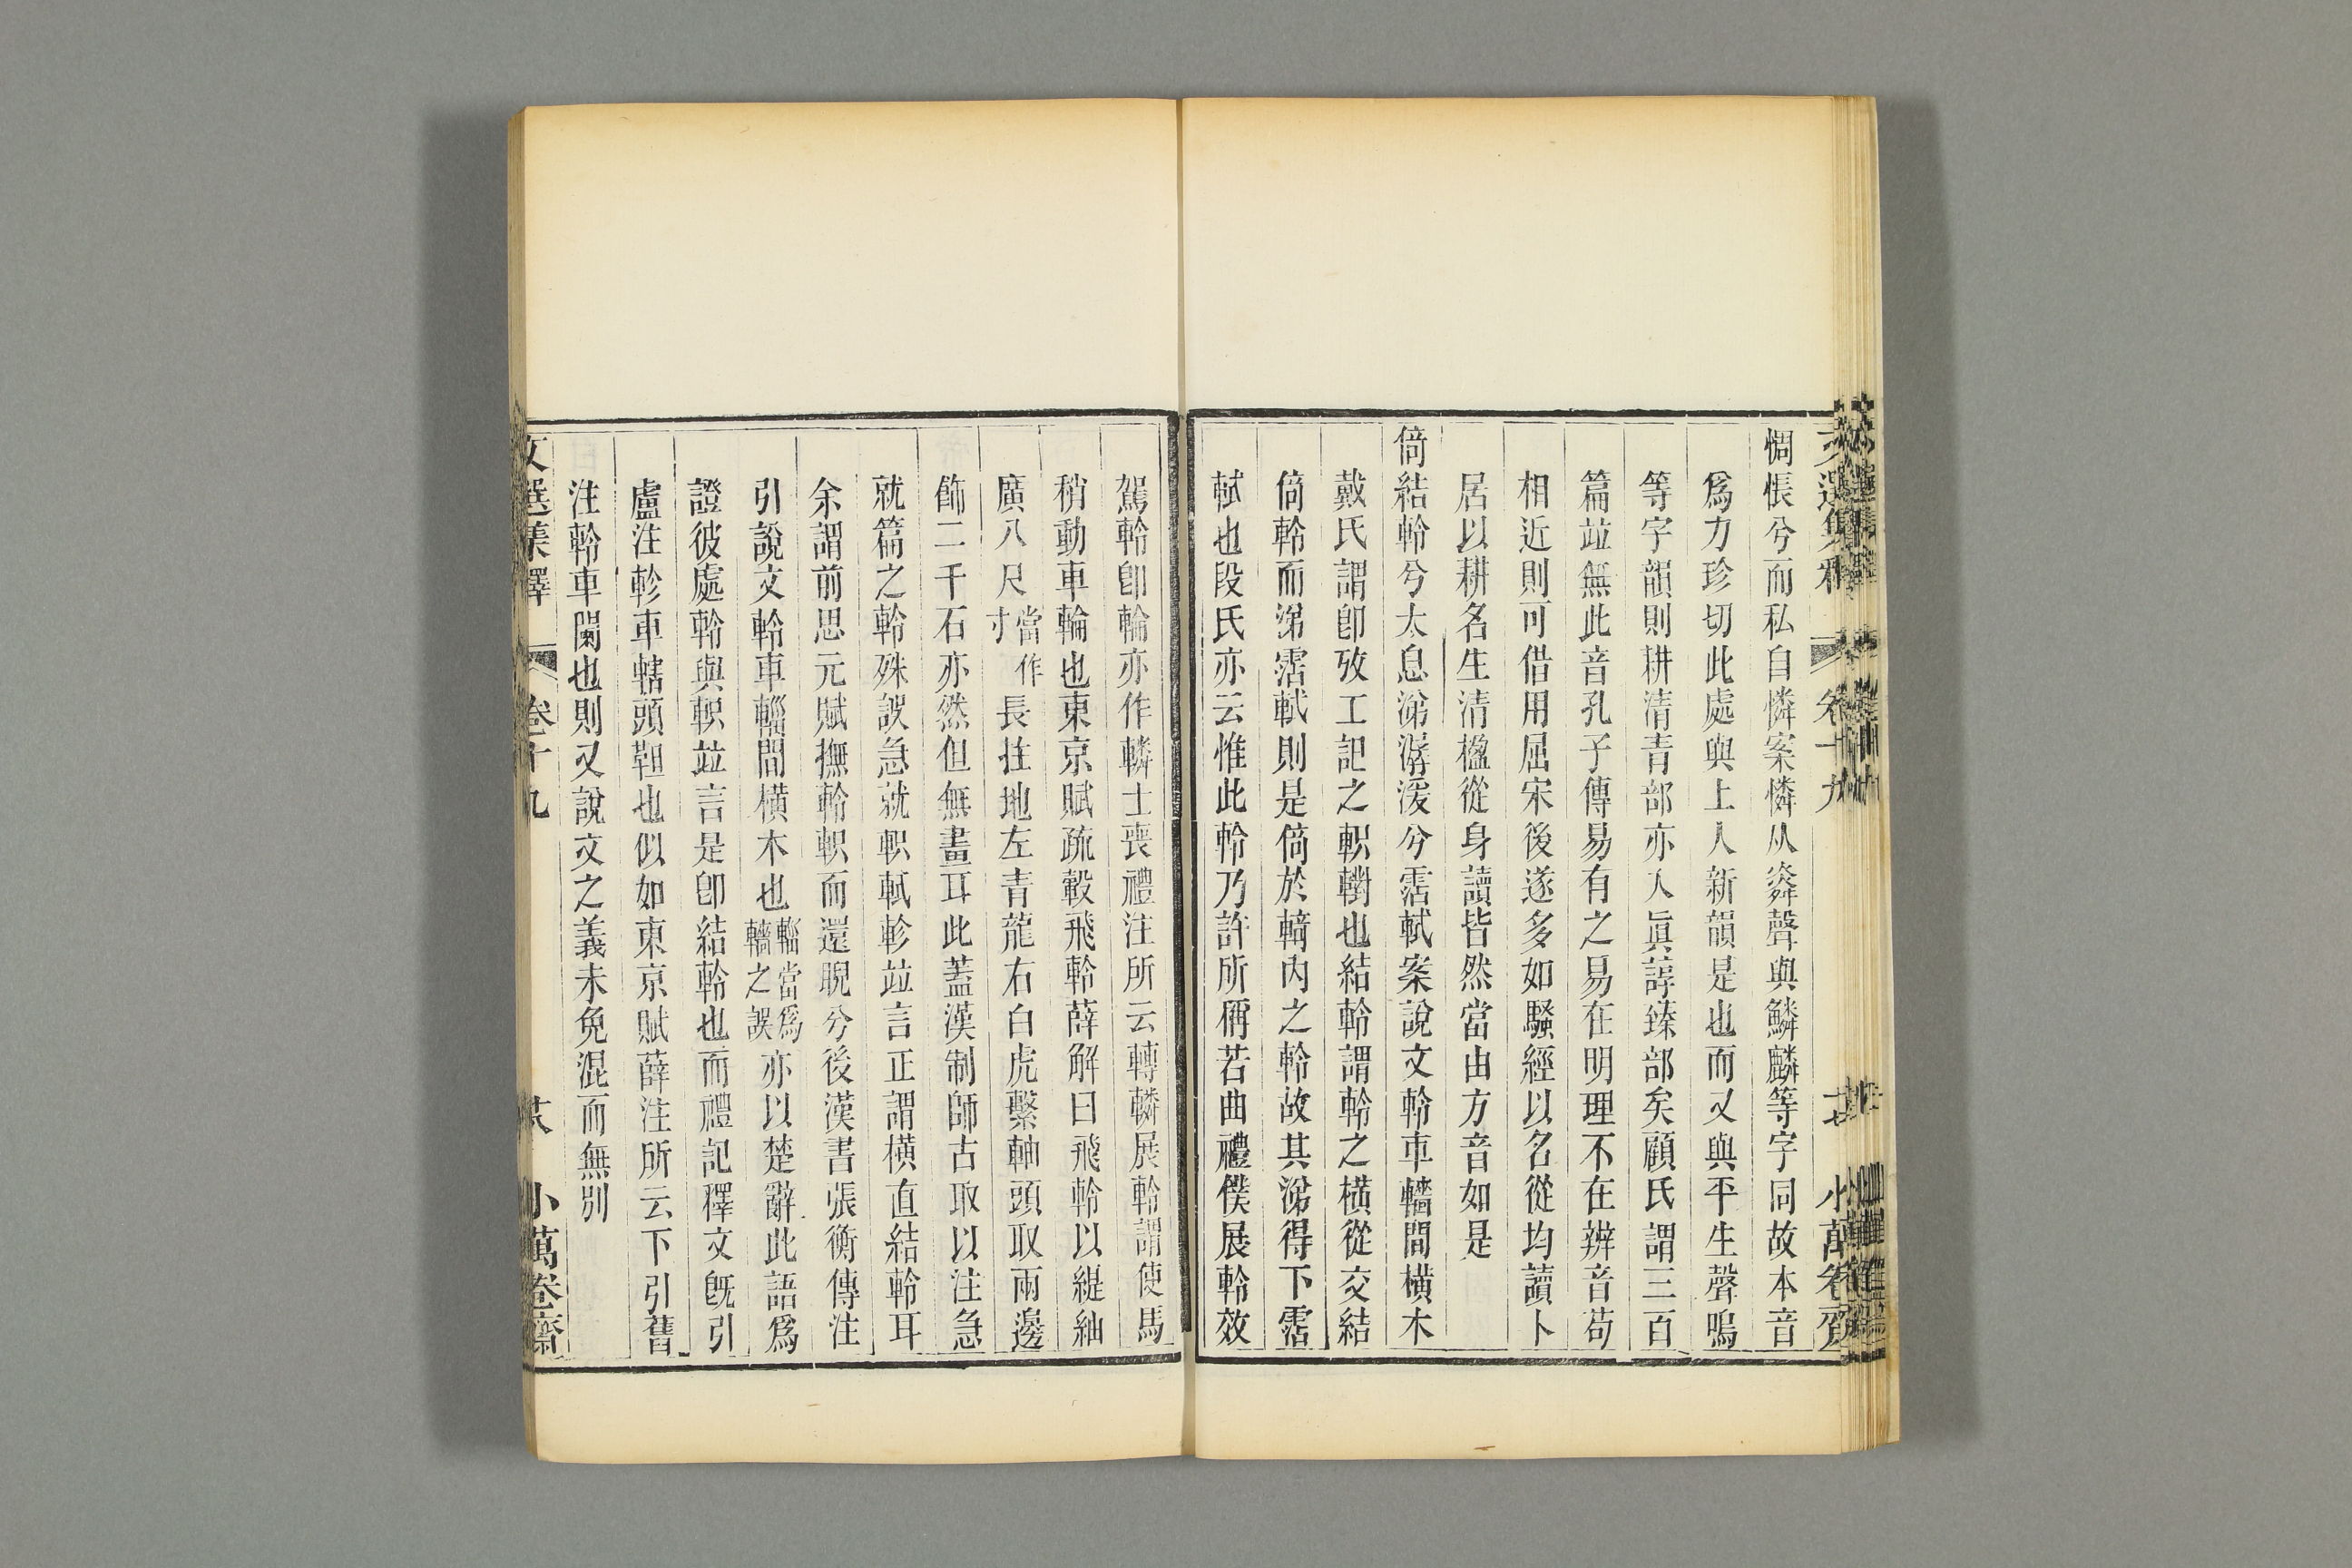 惆悵兮而私自憐案憐从粦聲與鱗麟等字同故本音
爲力珍切此處與上人新韻是也而又與平生聲鳴
等字韻則耕清青部亦入眞諄臻部矣顧氏謂三百
篇竝無此音孔子傳易有之易在明理不在辨音苟
相近則可借用屈宋後遂多如騷經以名從均讀卜
居以耕名生清楹從身讀皆然當由方音如是
倚結軨兮太息涕潺湲兮霑軾案說文軨車轖間橫木
戴氏謂卽攷工記之軹轛也結軨謂軨之橫從交結
倚軨而涕霑軾則是倚於輢內之軨故其涕得下霑
軾也段氏亦云惟此軨乃許所稱若曲禮僕展軨效
駕軨卽輪亦作轔士喪禮注所云轉轔展軨謂使馬
稍動車輪也東京賦疏轂飛軨薛解曰飛軨以緹紬
廣八尺當作寸長拄地左青龍右白虎繫軸頭取兩邊
飾二千石亦然但無畫耳此蓋漢制師古取以注急
就篇之軨殊誤急就軹軾軫竝言正謂橫直結軨耳
余謂前思元賦撫軨軹而還睨兮後漢書張衡傳注
引說文軨車輜間橫木也輜當爲轖之誤亦以楚辭此語爲
證彼處軨與軹竝言是卽結軨也而禮記釋文旣引
盧注軫車轄頭靼也似如東京賦薛注所云下引舊
注軨車闌也則又說文之義未免混而無別
文選集釋 卷十九 小萬卷齋